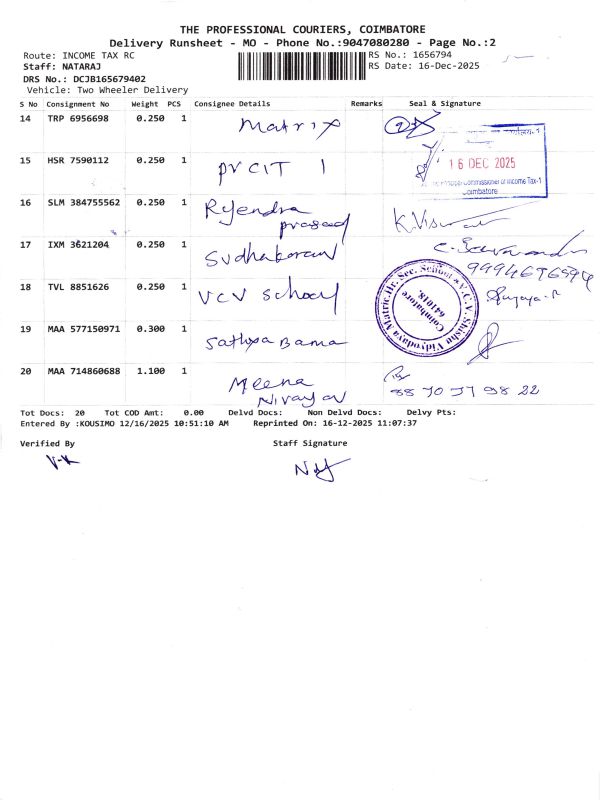 THE PROFESSIONAL COURIERS, COIMBATORE
Delivery Runsheet - MO - Phone No.:9047080280 - Page No.:2
Route: INCOME TAX RC RS No.: 1656794
Staff: NATARAJ RS Date: 16-Dec-2025
DRS No.: DCJB165679402
Vehicle: Two Wheeler Delivery
S No Consignment No Weight PCS Consignee Details Remarks Seal & Signature
14 TRP 6956698 0.250 1 Matrix
15 HSR 7590112 0.250 1 PrCIT 1
16 DEC 2025
Commissioner of Income Tax-1
Coimbatore
16 SLM 384755562 0.250 1 Rajendra
prasad
17 IXM 3621204 0.250 1 Sudhakaran
9994696594
18 TVL 8851626 0.250 1 VCV School
V.C.V. Shishu Vidyodaya Matric.Hr. Sec. School
Coimbatore
641018.
19 MAA 577150971 0.300 1 Sathya Bama
20 MAA 714860688 1.100 1 Meena
Nirayan
Tot Docs: 20 Tot COD Amt: 0.00 Delvd Docs: Non Delvd Docs: Delvy Pts:
Entered By :KOUSIMO 12/16/2025 10:51:10 AM Reprinted On: 16-12-2025 11:07:37
Verified By Staff Signature
V-K